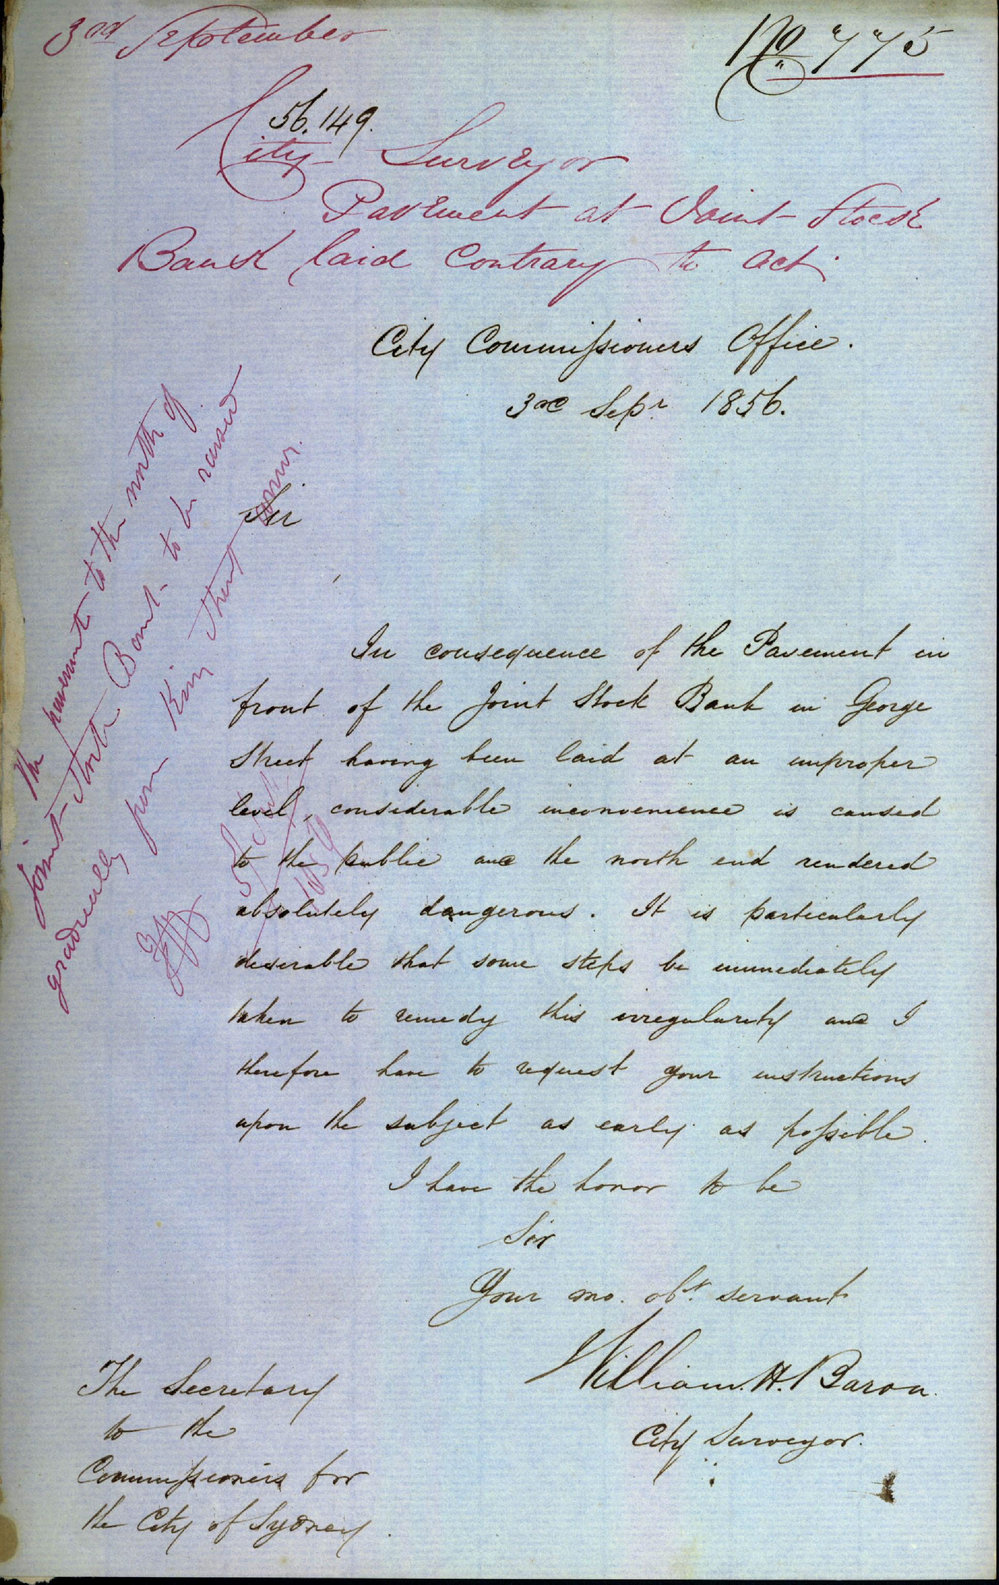 3rd September
No 775
56.149.
City Surveyor
Pavement at Joint Stock
Bank laid contrary to Act.
City Commissioners Office.
3rd Sepr 1856.
Sir
In consequence of the Pavement in
front of the Joint Stock Bank in George
Street having been laid at an improper
level, considerable inconvenience is caused
to the public and the north end rendered
absolutely dangerous. It is particularly
desirable that some steps be immediately
taken to remedy this irregularity and I
therefore have to request your instructions
upon the subject as early as possible.
I have the honor to be
Sir
Your mo. obt. servant
William. H. Baron.
City Surveyor.
The Secretary
to the
Commissioners for
the City of Sydney.
The pavement to the north of
Joint-Stock Bank to be raised
gradually from King Street
3 Sept
1856